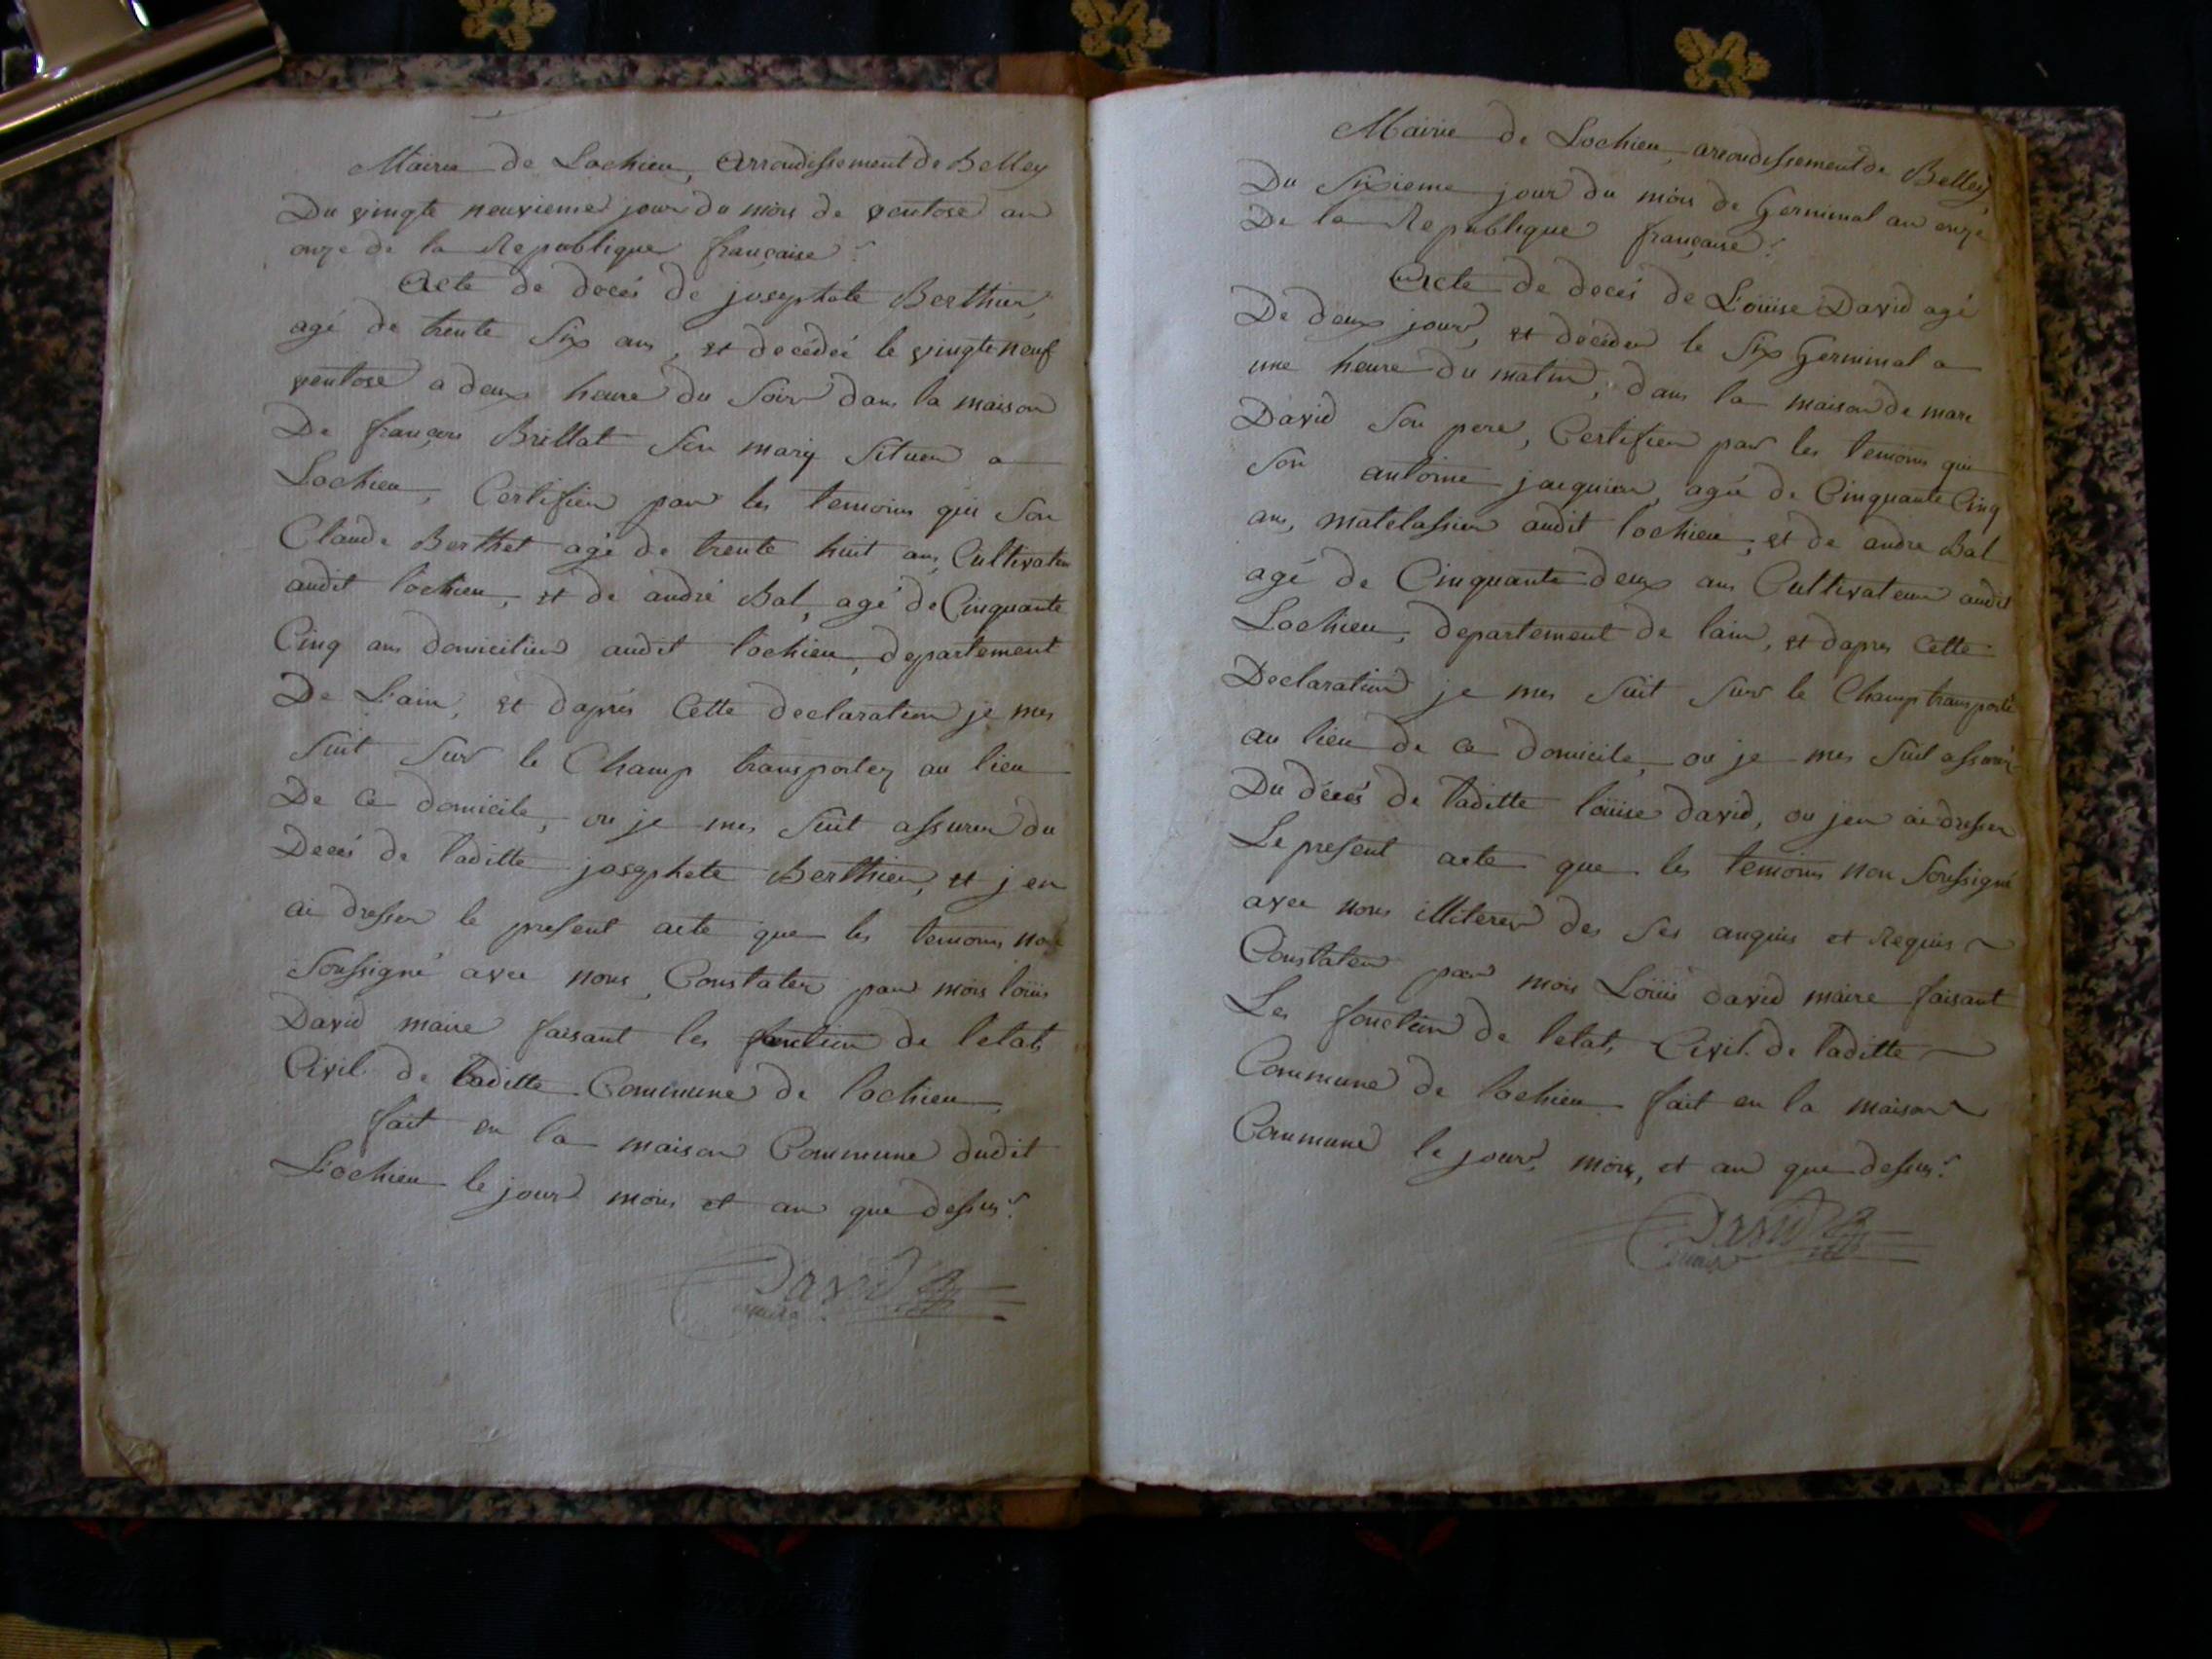 Mairie de Lochieu, Arrondissement de Belley
Du vingte neuvieme jour du mois de ventose an
onze de la Republique française.
Acte de decés de josephete Berthier,
agé de trente Six ans, et decédeé le vingte neuf
ventose a deux heure du Soir dans la maison
De françois Brillat Son mary Situeu a
Lochieu, Certifieu par les temoins qui Son
Claude Berthet agé de trente huit ans, Cultivateu
audit lochieu, et de andré Bal, agé de Cinquante
Cinq ans domicilieu audit lochieu, departement
De L'ain, et daprés Cette declaration je mes
Suit Sur le Champ transporter au lieu
De ce domicile, ou je mes Suit assureu du
Decés de laditte josephete Berthier, et j en
ai dresser le present acte que les temoins non
Soussigné avec nous, Constater par mois loüis
David maire faisant les fonction de letat
Civil de laditte Commune de lochieu
fait en la maison Commune dudit
Lochieu le jour mois et an que dessus.
David
maire
Mairie de Lochieu, arrondissement de Belley
Du Sixieme jour du mois de Germinal an onze
De la Republique française.
Acte de decés de Loüise David agé
De deux jour, et décédeu le Six Germinal a
une heure du matin, dans la maison de marc
David Son pere, Certifieu par les temoins qui
Son antoine jacquier, agé de Cinquante Cinq
ans, matelassier audit lochieu, et de andre Bal
agé de Cinquante deux ans Cultivateur audit
Lochieu, departement de lain, et dapres Cette
Declaration je mes Suit Sur le Champ transporté
au lieu de ce domicile, ou je mes Suit assuré
Du décés de laditte loüise david, ou jen ai dresser
Le present acte que les temoins non Soussigné
avec nous illiterer des Ses anquis et Requis
Constater par mois Loüis david maire faisant
Les fonction de letat Civil de laditte
Commune de lochieu fait en la maison
Commune le jour, mois, et an que dessus.
David
maire